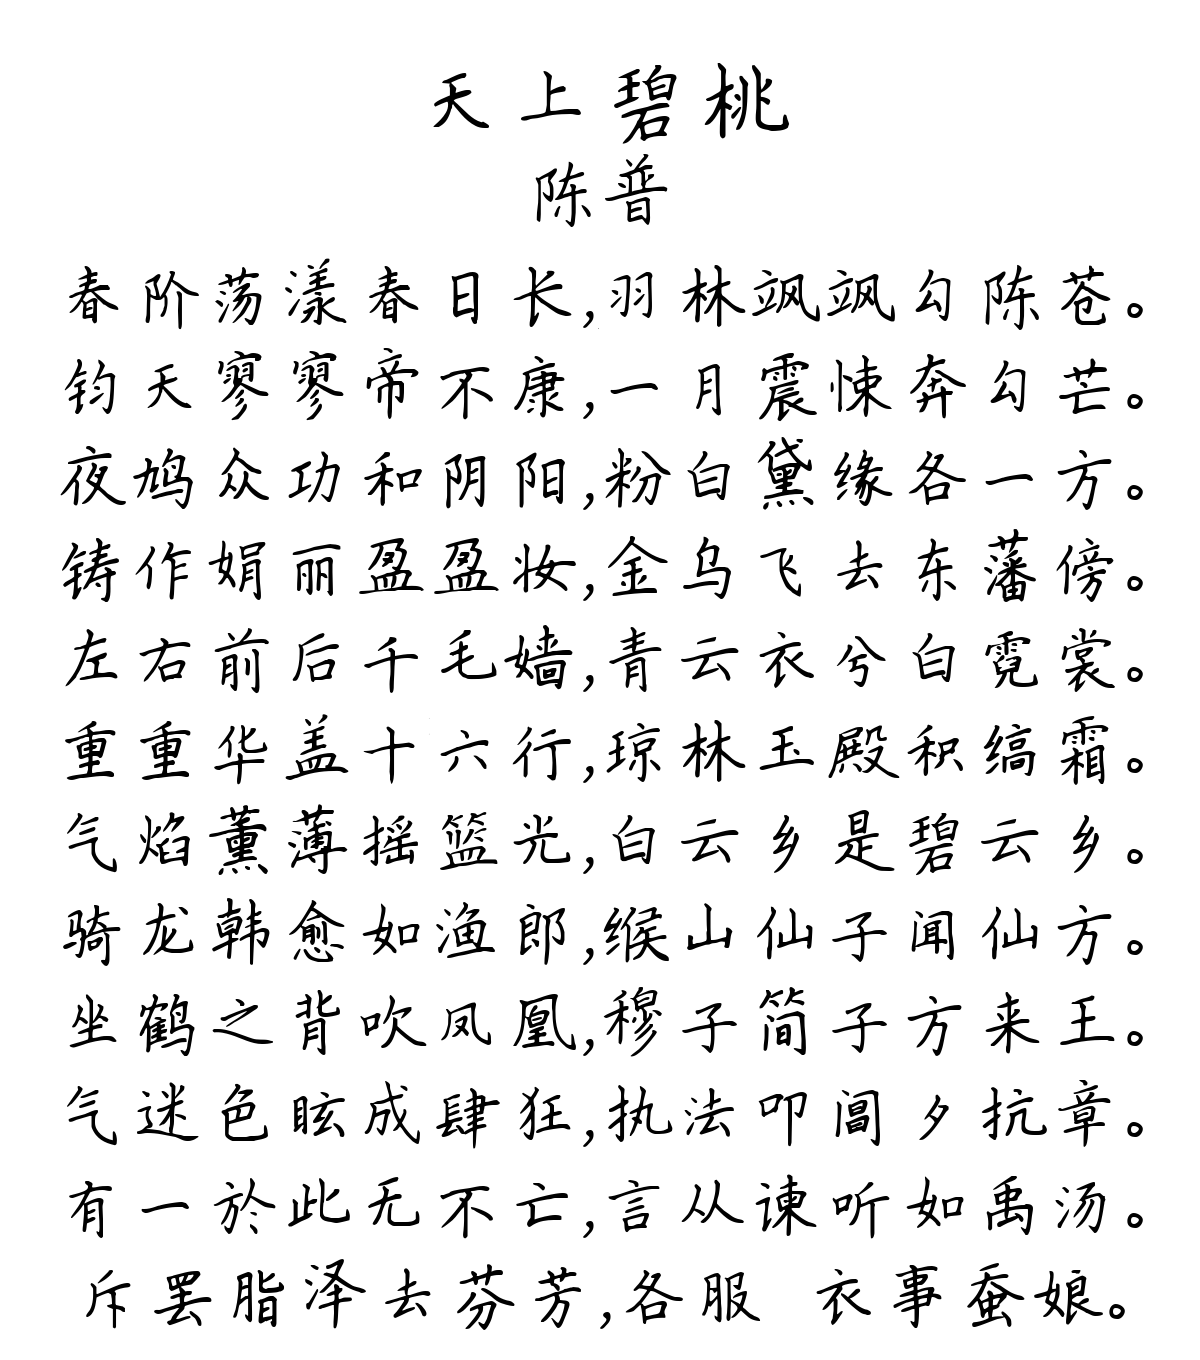 天上碧桃
陈普
春阶荡漾春日长,羽林飒飒勾陈苍。
钧天寥寥帝不康,一月震悚奔勾芒。
夜鸠众功和阴阳,粉白黛缘各一方。
铸作娟丽盈盈妆,金乌飞去东藩傍。
左右前后千毛嫱,青云衣兮白霓裳。
重重华盖十六行,琼林玉殿积缟霜。
气焰薰薄摇篮光,白云乡是碧云乡。
骑龙韩愈如渔郎,缑山仙子闻仙方。
坐鹤之背吹凤凰,穆子简子方来王。
气迷色眩成肆狂,执法叩阊夕抗章。
有一於此无不亡,言从谏听如禹汤。
斥罢脂泽去芬芳,各服 衣事蚕娘。